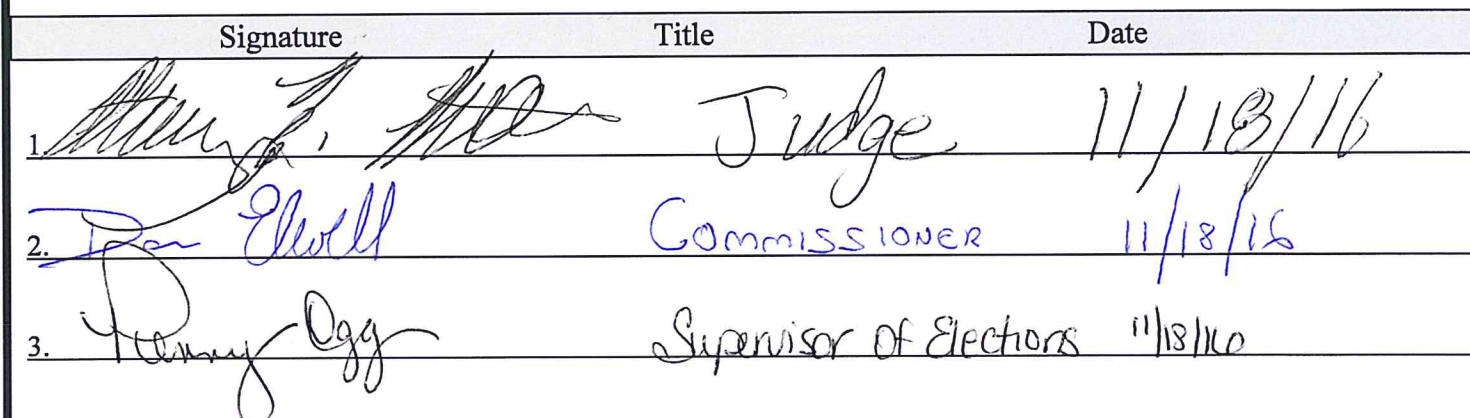 Signature Title Date
1. L. Judge 11/18/16
2. Don Elwell Commissioner 11/18/16
3. Penny Ogg Supervisor of Elections 11/18/16